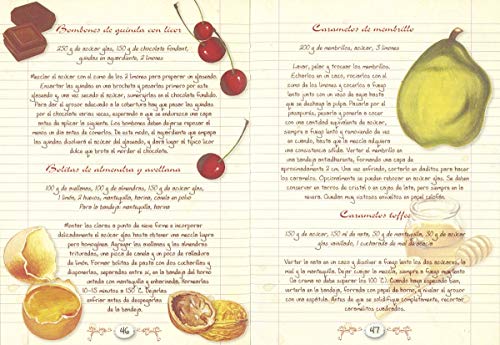 Bombones de guinda con licor
250 g de azúcar glas, 150 g de chocolate fondant,
guindas en aguardiente, 2 limones
Mezclar el azúcar con el zumo de los 2 limones para preparar un glaseado.
Ensartar las guindas en una brocheta y pasarlas primero por este
glaseado y, una vez secado el azúcar, sumergirlas en el chocolate fundido.
Para dar el grosor adecuado a la cobertura hay que pasar las guindas
por el chocolate varias veces, esperando a que se endurezca una capa
antes de aplicar la siguiente. Los bombones deben dejarse reposar al
menos un día antes de comerlos. De este modo, el aguardiente que empapa
las guindas disolverá el azúcar del glaseado, y dará lugar al típico licor
dulce que brota al morder el chocolate.
Bolitas de almendra y avellana
100 g de avellanas, 100 g de almendras, 150 g de azúcar glas,
1 limón, 2 huevos, mantequilla, harina, canela en polvo
Para la bandeja: mantequilla, harina
Montar las claras a punto de nieve firme e incorporar
delicadamente el azúcar glas hasta obtener una mezcla ligera
pero homogénea. Agregar las avellanas y las almendras
trituradas, una pizca de canela y un poco de ralladura
de limón. Formar bolitas de pasta con dos cucharillas y
disponerlas, separadas entre sí, en la bandeja del horno
untada con mantequilla y enharinada. Hornearlas
10-15 minutos a 150 °C. Dejarlas
enfriar antes de despegarlas
de la bandeja.
46
Caramelos de membrillo
200 g de membrillos, azúcar, 3 limones
Lavar, pelar y trocear los membrillos.
Echarlos en un cazo, rociarlos con el
zumo de los limones y cocerlos a fuego
lento justo con un vaso de agua hasta
que se deshaga la pulpa. Pasarla por el
pasapurés, pesarla y ponerla a cocer
con una cantidad equivalente de azúcar,
siempre a fuego lento y removiendo de vez
en cuando, hasta que la mezcla adquiera
una consistencia sólida. Verter el membrillo en
una bandeja antiadherente, formando una capa de
aproximadamente 2 cm. Una vez enfriado, cortarlo en daditos para hacer
los caramelos. Opcionalmente se pueden rebozar en azúcar glas. Se deben
conservar en tarros de cristal o en cajas de lata, pero siempre en la
nevera. Quedan muy vistosos envueltos en papel de aluminio.
Caramelos toffee
150 g de azúcar, 150 ml de nata, 50 g de mantequilla, 30 g de azúcar
glas vainillado, 1 cucharada de miel de acacia
Verter la nata en un cazo y disolver a fuego lento los dos azúcares, la
miel y la mantequilla. Dejar cocer la mezcla, siempre a fuego muy lento
(la crema no debe superar los 100 °C). Cuando haya espesado bien,
verterla en la bandeja, forrada con papel de horno, y nivelar el grosor
con una espátula. Antes de que se solidifique completamente, recortar
caramelitos cuadrados.
47